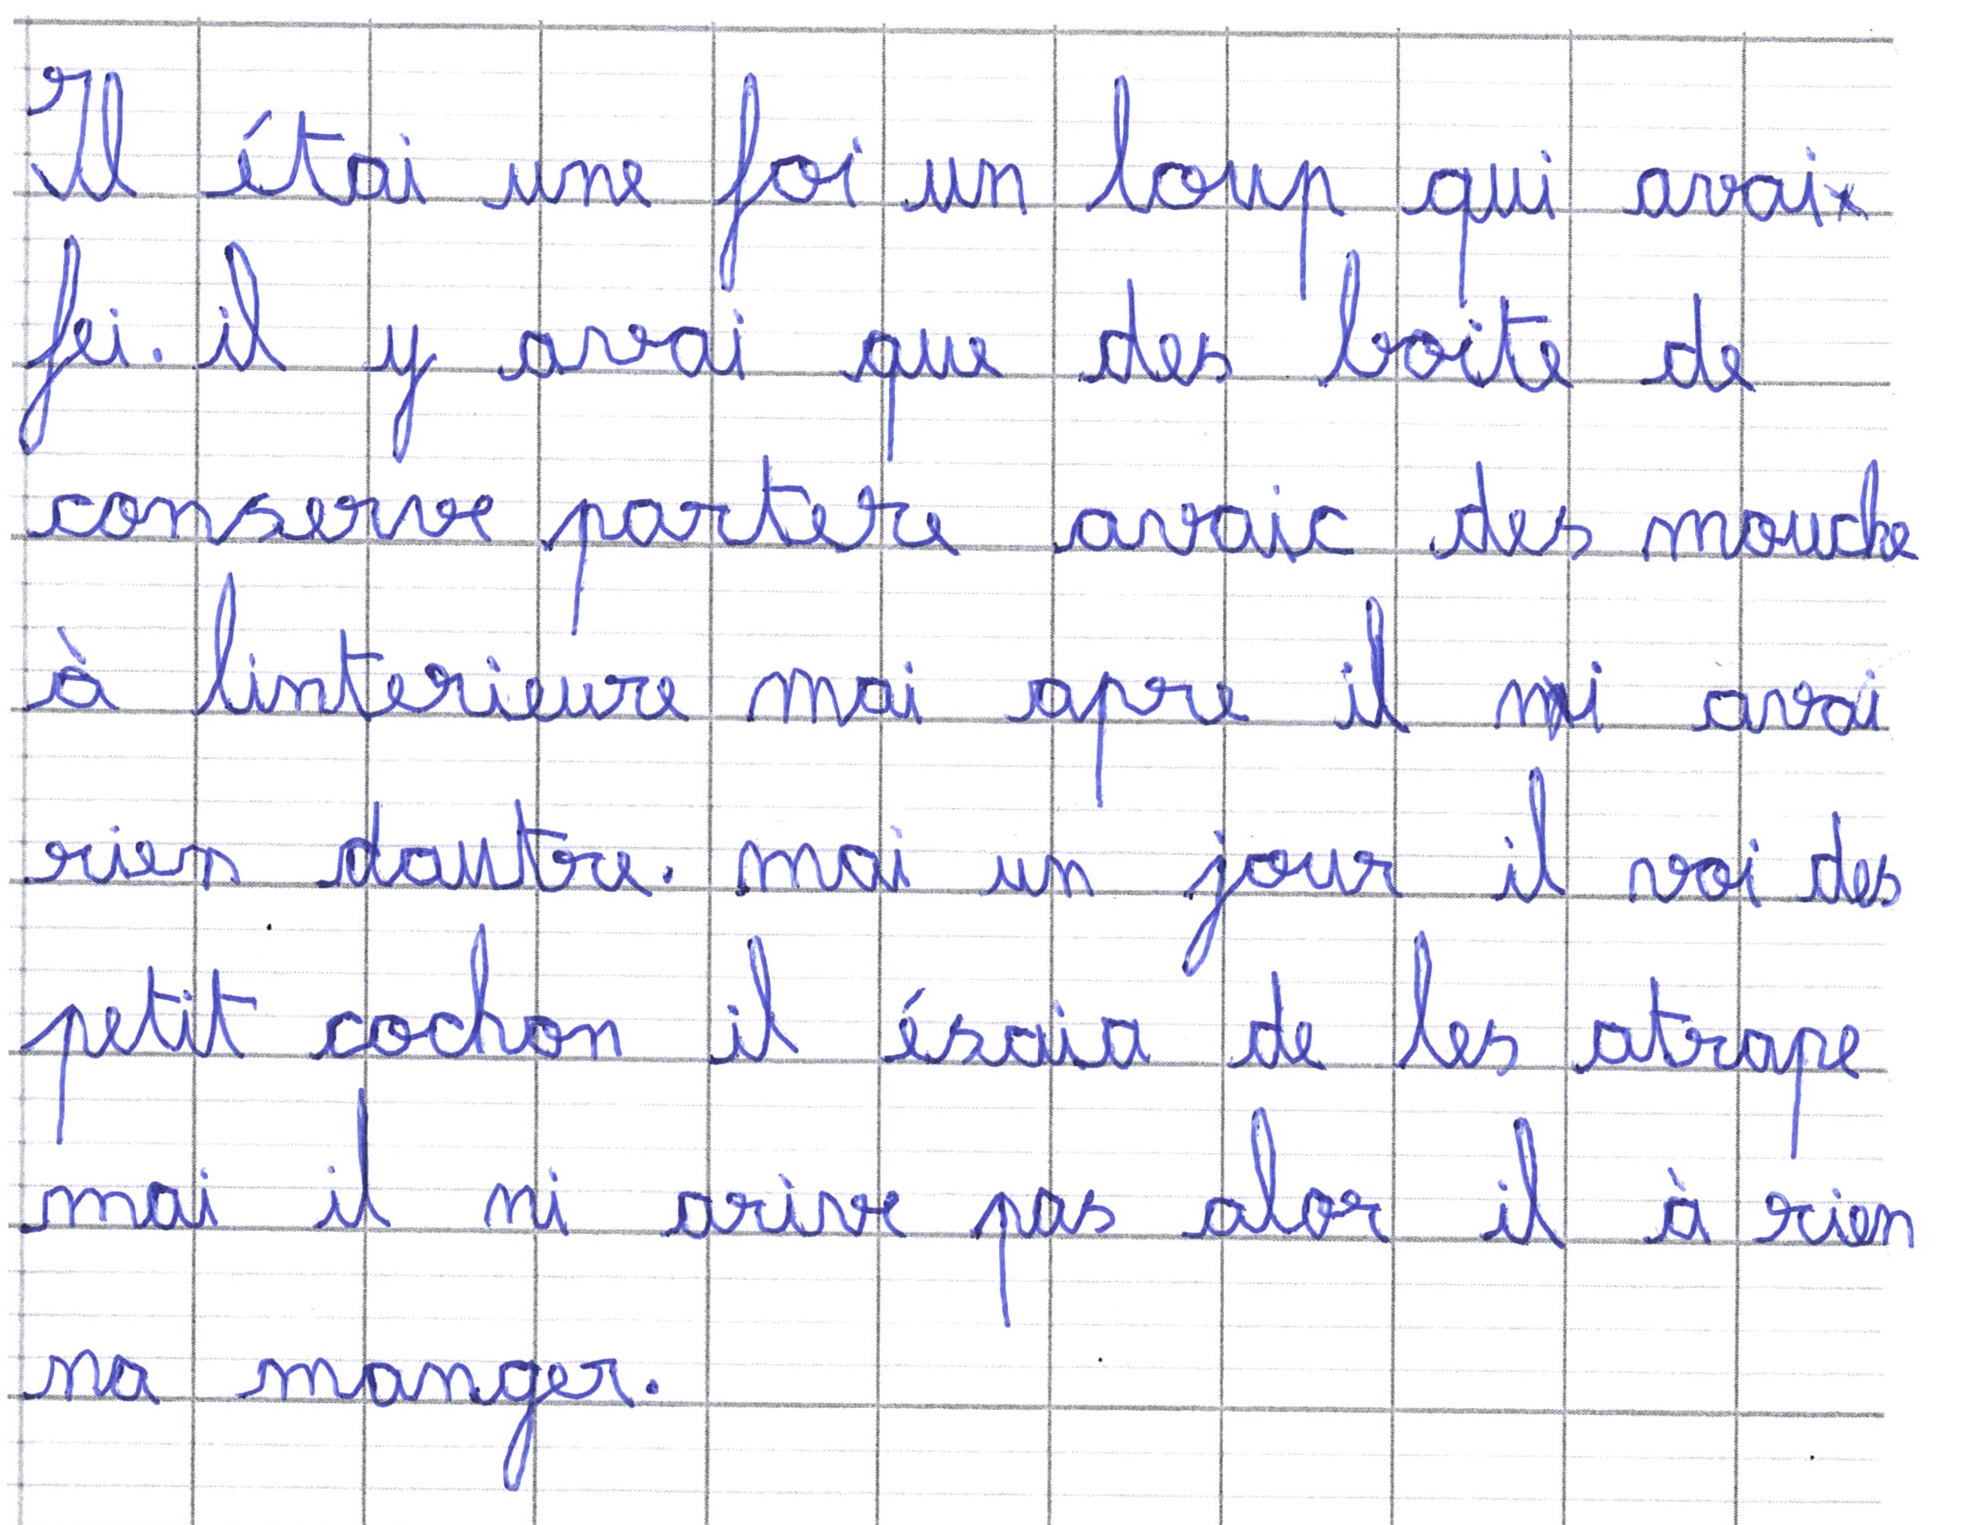 Il étai une foi un loup qui avaix
fei. il y avai que des boite de
conserve partere avaic des mouche
à linterieure mai apre il ni avai
rien dautre. mai un jour il voi des
petit cochon il ésaia de les atrape
mai il ni arive pas alor il à rien
na manger.